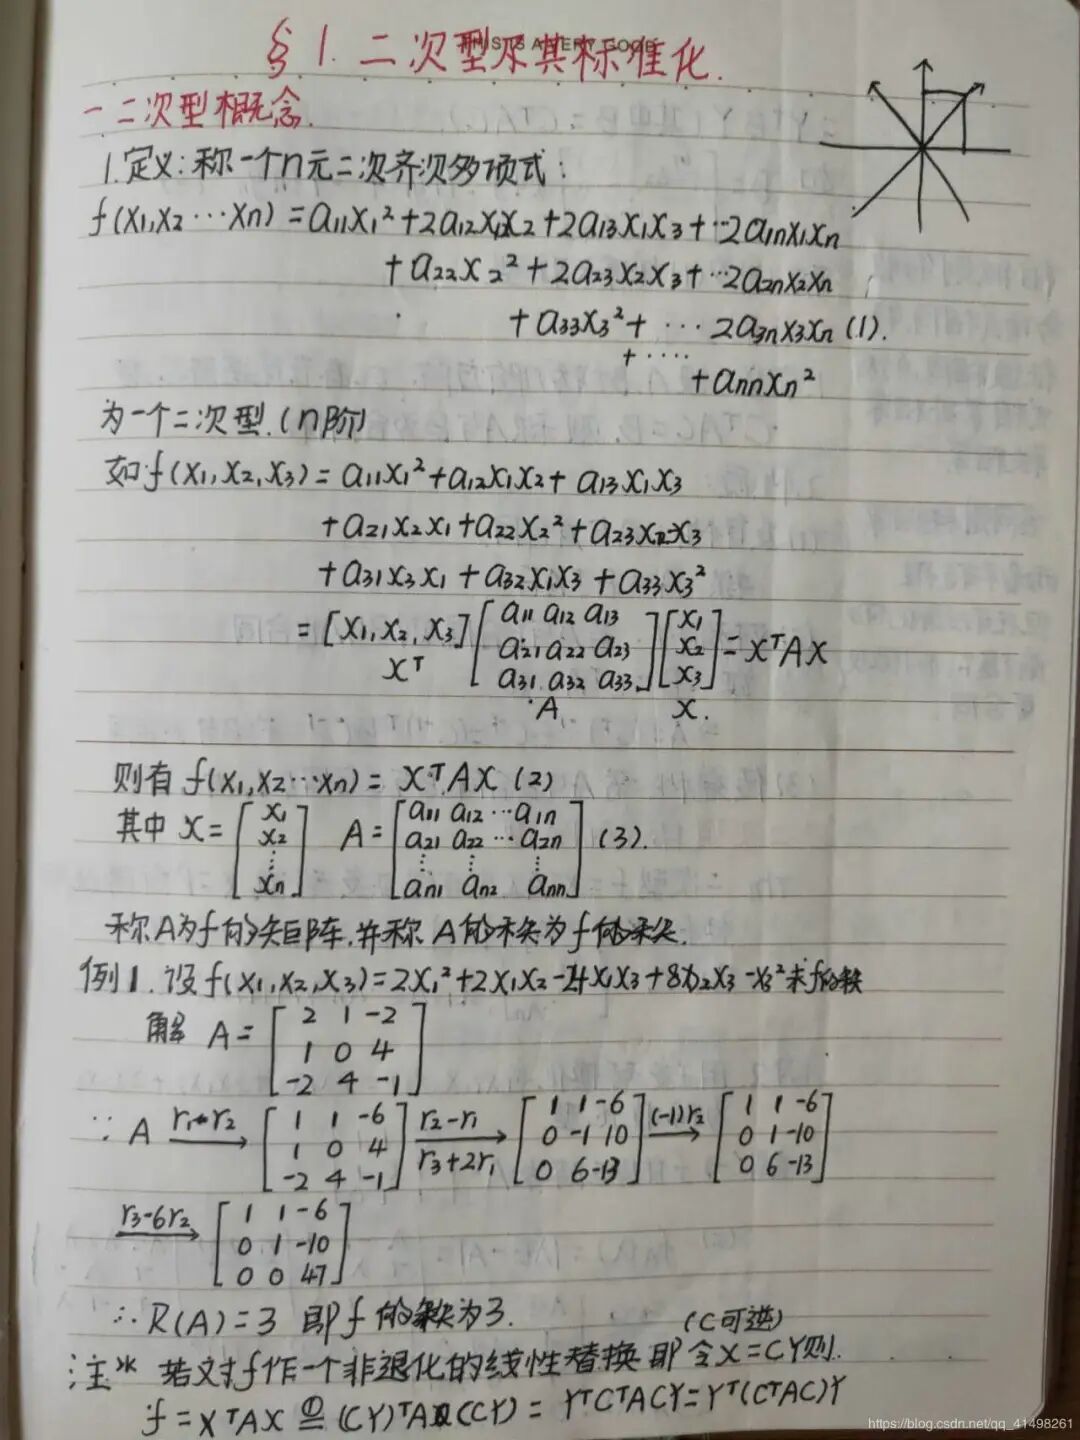 §1.二次型及其标准化.
一 二次型概念.
1.定义:称一个n元二次齐次多项式:
f(x₁,x₂⋯xn)=a₁₁x₁²+2a₁₂x₁x₂+2a₁₃x₁x₃+⋯2a₁nx₁xn
+a₂₂x₂²+2a₂₃x₂x₃+⋯2a₂nx₂xn
+a₃₃x₃²+⋯2a₃nx₃xn (1).
+⋯⋯
+annxn²
为一个二次型.(n阶)
如f(x₁,x₂,x₃)=a₁₁x₁²+a₁₂x₁x₂+a₁₃x₁x₃
+a₂₁x₂x₁+a₂₂x₂²+a₂₃x₂x₃
+a₃₁x₃x₁+a₃₂x₁x₃+a₃₃x₃²
=[x₁,x₂,x₃] [a₁₁ a₁₂ a₁₃ [x₁
a₂₁ a₂₂ a₂₃ x₂ =XᵀAX
Xᵀ a₃₁ a₃₂ a₃₃] x₃]
A X.
则有f(x₁,x₂⋯xn)=XᵀAX (2)
其中 X=[x₁ A=[a₁₁ a₁₂ ⋯a₁n
x₂ a₂₁ a₂₂ ⋯a₂n (3).
⋮ ⋮ ⋮ ⋮
xn] an₁ an₂ ann]
称A为f的矩阵,并称A的秩为f的秩.
例1.设f(x₁,x₂,x₃)=2x₁²+2x₁x₂-4x₁x₃+8x₂x₃-x₃²求f的秩
解 A=[2 1 -2
1 0 4
-2 4 -1]
∵A r₁+r₂→ [1 1 -6 r₂-r₁ [1 1 -6 (-1)r₂→ [1 1 -6
1 0 4 → 0 -1 10 0 1 -10
-2 4 -1] r₃+2r₁ 0 6 -13] 0 6 -13]
r₃-6r₂→ [1 1 -6
0 1 -10
0 0 47]
∴R(A)=3 即f的秩为3.
(C可逆)
注* 若对f作一个非退化的线性替换即令X=CY则.
f=XᵀAX ①= (CY)ᵀA(CY)=YᵀCᵀACY=Yᵀ(CᵀAC)Y
https://blog.csdn.net/qq_41498261